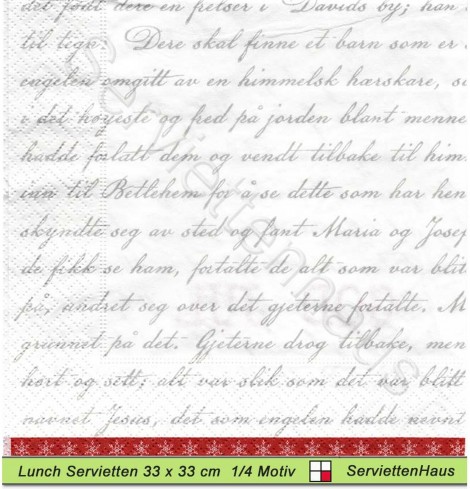 det født dere en frelser i Davids by; han
til tegn: Dere skal finne et barn som er
engelen omgitt av en himmelsk hærskare, s
i det høyeste og fred på jorden blant menne
hadde forlatt dem og vendt tilbake til him
inn til Betlehem for å se dette som har hen
skyndte seg av sted og fant Maria og Josef
de fikk se ham, fortalte de alt som var blitt
på, undret seg over det gjeterne fortalte. M
grunnet på det. Gjeterne drog tilbake, men
hørt og sett; alt var slik som det var blitt
navnet Jesus, det som engelen hadde nevnt
Serviettenhaus
Lunch Servietten 33 x 33 cm 1/4 Motiv ServiettenHaus